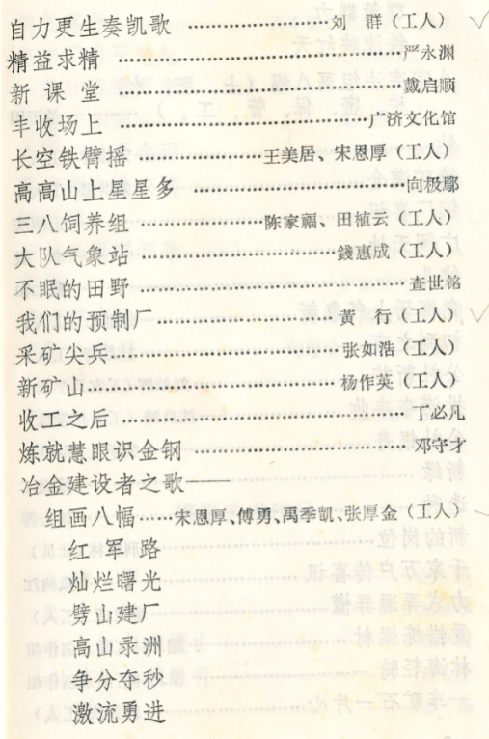 自力更生奏凯歌……………………刘 群（工人）
精益求精……………………严永渊
新 课 堂……………………戴启顺
丰收场上……………………广济文化馆
长空铁臂摇……………………王美居、宋恩厚（工人）
高高山上星星多……………………向极鄢
三八饲养组……………………陈家福、田植云（工人）
大队气象站……………………錢惠成（工人）
不眠的田野……………………查世铭
我们的预制厂……………………黄 行（工人）
采矿尖兵……………………张如浩（工人）
新矿山……………………杨作英（工人）
收工之后……………………丁必凡
炼就慧眼识金钢……………………邓守才
冶金建设者之歌——
组画八幅……宋恩厚、傅勇、禹季凯、张厚金（工人）
红 军 路
灿烂曙光
劈山建厂
高山录洲
争分夺秒
激流勇进